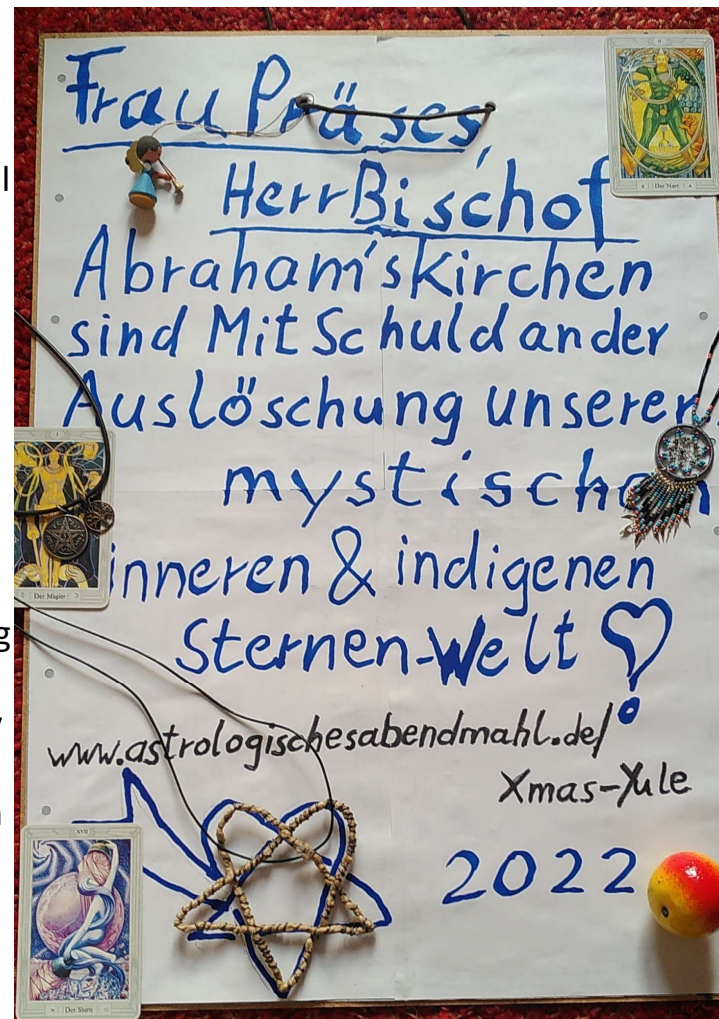 Frau Präses,
Herr Bischof
Abraham'skirchen
sind MitSchuld an der
Auslöschung unserer
mystischen
inneren & indigenen
Sternen-Welt
www.astrologischesabendmahl.de/
Xmas-Yule
2022
Der Narr
I
Der Magier
XVII
Der Stern
l
g